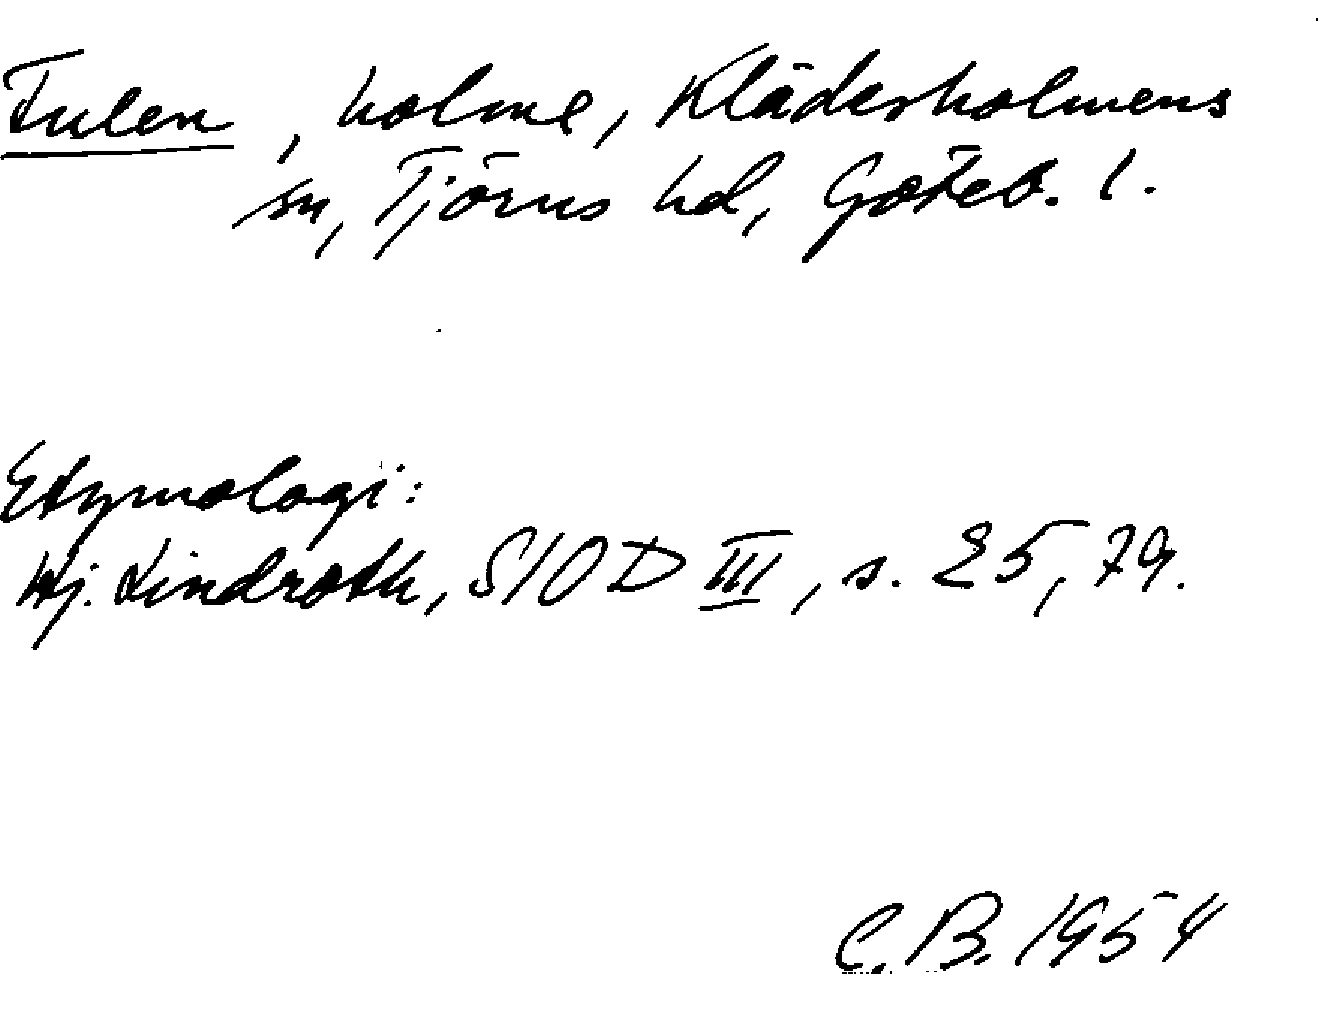 Tulen, holme, Klädesholmens
sn, Tjörns hd, Göteb. l.
Etymologi:
Hj. Lindroth, SIOD III, s. 25, 79.
C.B. 1954